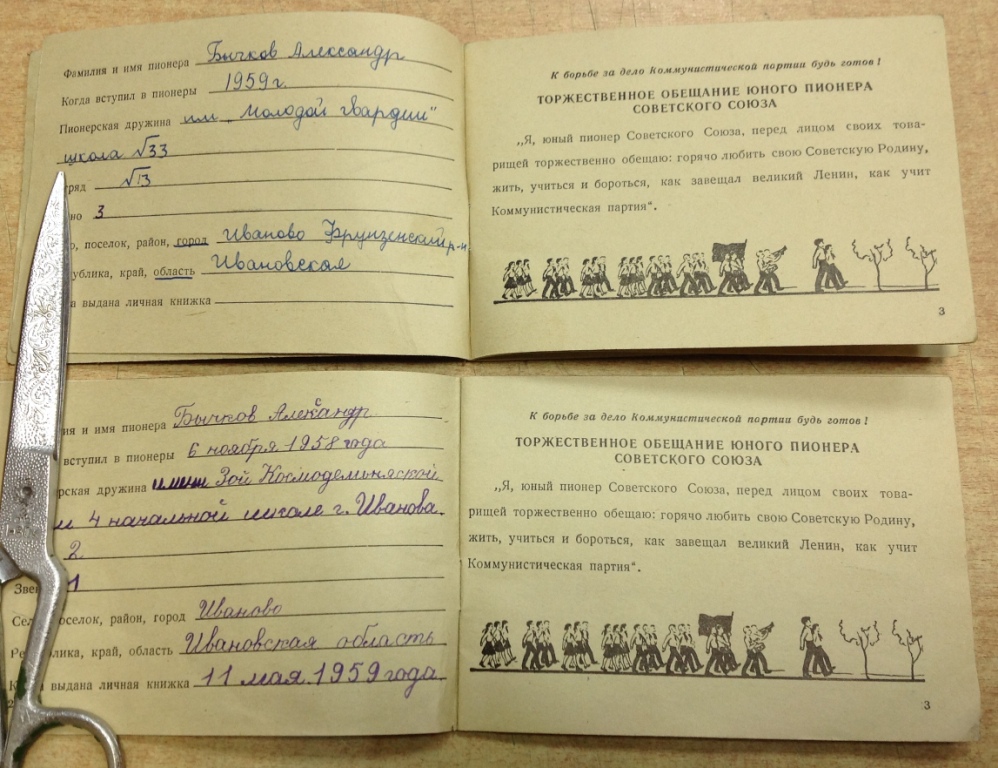 Фамилия и имя пионера Бычков Александр
Когда вступил в пионеры 1959 г.
Пионерская дружина им „Молодой гвардии"
школа №33
ряд №3
но 3
о, поселок, район, город Иваново Фрунзенский р-н.
ублика, край, область Ивановская
а выдана личная книжка
К борьбе за дело Коммунистической партии будь готов!
ТОРЖЕСТВЕННОЕ ОБЕЩАНИЕ ЮНОГО ПИОНЕРА
СОВЕТСКОГО СОЮЗА
„Я, юный пионер Советского Союза, перед лицом своих това-
рищей торжественно обещаю: горячо любить свою Советскую Родину,
жить, учиться и бороться, как завещал великий Ленин, как учит
Коммунистическая партия“.
3
ия и имя пионера Бычков Александр
вступил в пионеры 6 ноября 1958 года
рская дружина имени Зои Космодемьяской
и 4 начальной школе г. Иванова.
2
Звен 1
Сел оселок, район, город Иваново
Рес лика, край, область Ивановская область
К а выдана личная книжка 11 мая 1959 года
2
К борьбе за дело Коммунистической партии будь готов!
ТОРЖЕСТВЕННОЕ ОБЕЩАНИЕ ЮНОГО ПИОНЕРА
СОВЕТСКОГО СОЮЗА
„Я, юный пионер Советского Союза, перед лицом своих това-
рищей торжественно обещаю: горячо любить свою Советскую Родину,
жить, учиться и бороться, как завещал великий Ленин, как учит
Коммунистическая партия“.
3